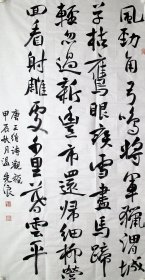 風勁角弓鳴將軍獵渭城
草枯鷹眼疾雪盡馬蹄
輕忽過新豐市還歸細柳營
回看射雕處千里暮雲平
唐王維詩觀獵
甲辰秋月